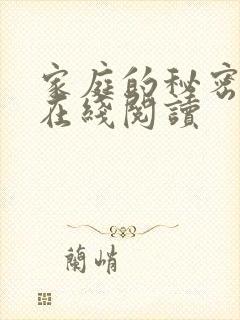 家庭的秘密
在綫閱讀
蘭峭